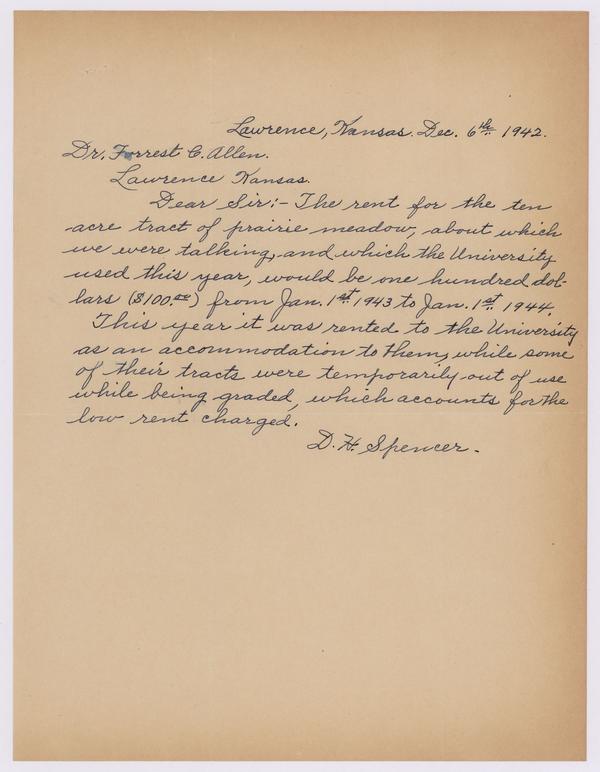 Lawrence, Kansas. Dec. 6th. 1942.
Dr. Forrest C. Allen.
Lawrence Kansas.
Dear Sir:- The rent for the ten
acre tract of prairie meadow, about which
we were talking, and which the University
used this year, would be one hundred dol-
lars ($100.00) from Jan. 1st 1943 to Jan. 1st. 1944.
This year it was rented to the University
as an accommodation to them, while some
of their tracts were temporarily out of use
while being graded, which accounts for the
low rent charged.
D. H. Spencer.